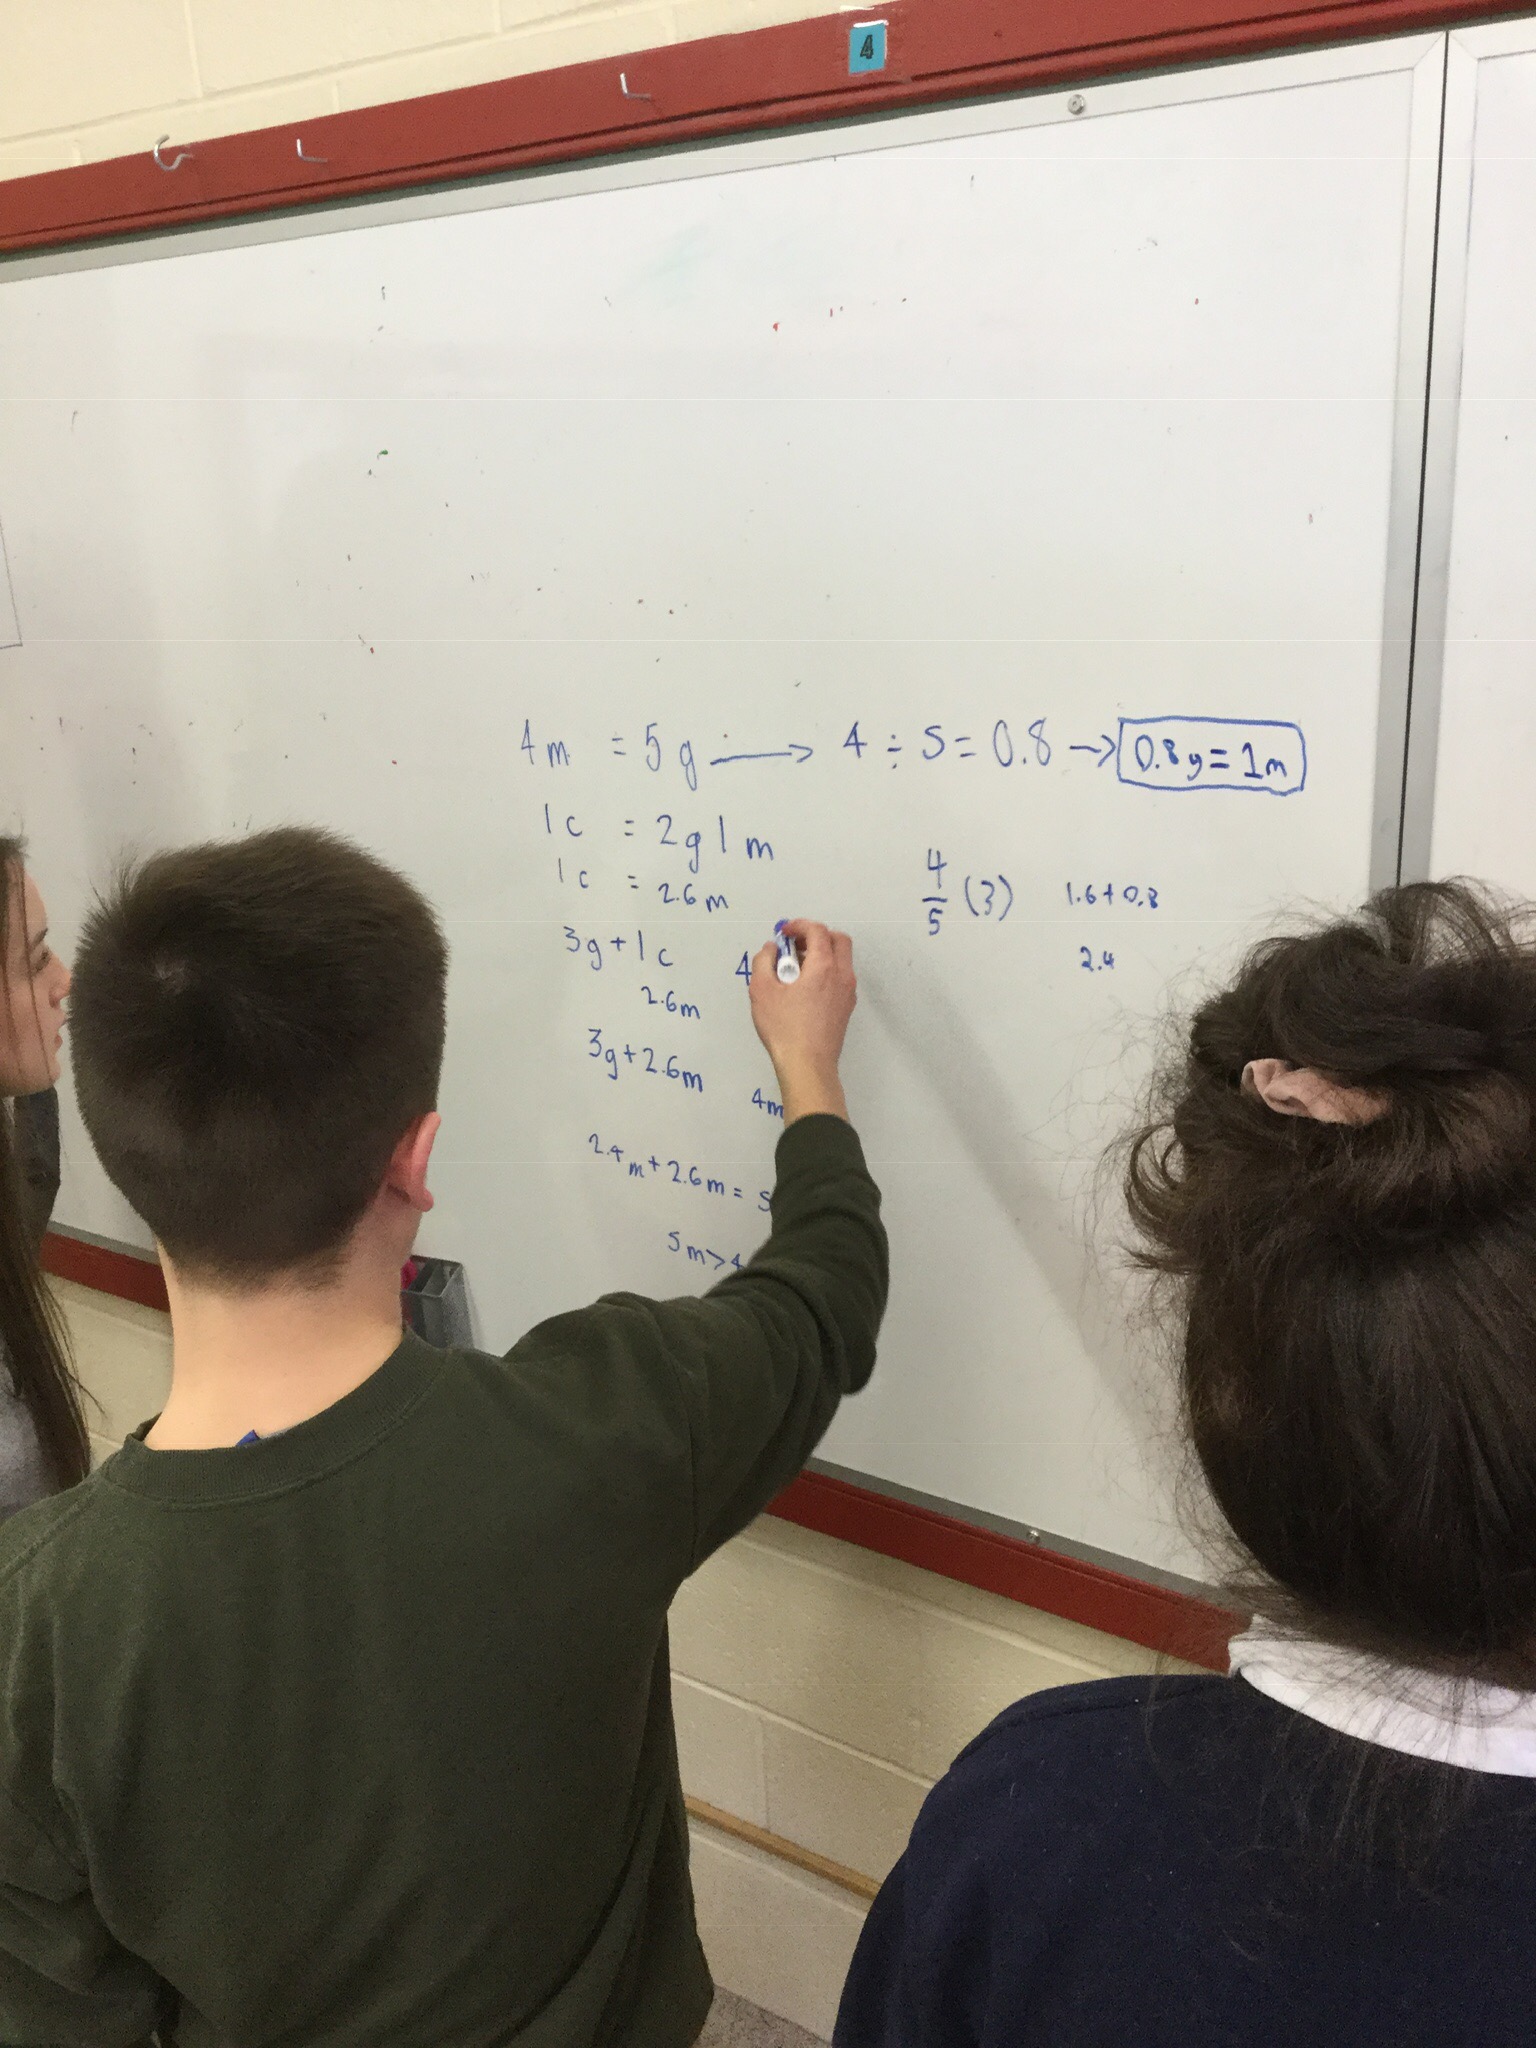 4
4m = 5g → 4 ÷ 5 = 0.8 → 0.8g = 1m
1c = 2g 1m
1c = 2.6m
4/5 (3) 1.6 + 0.8
2.4
3g + 1c 4
2.6m
3g + 2.6m 4m
2.4m + 2.6m = 5
5m > 4